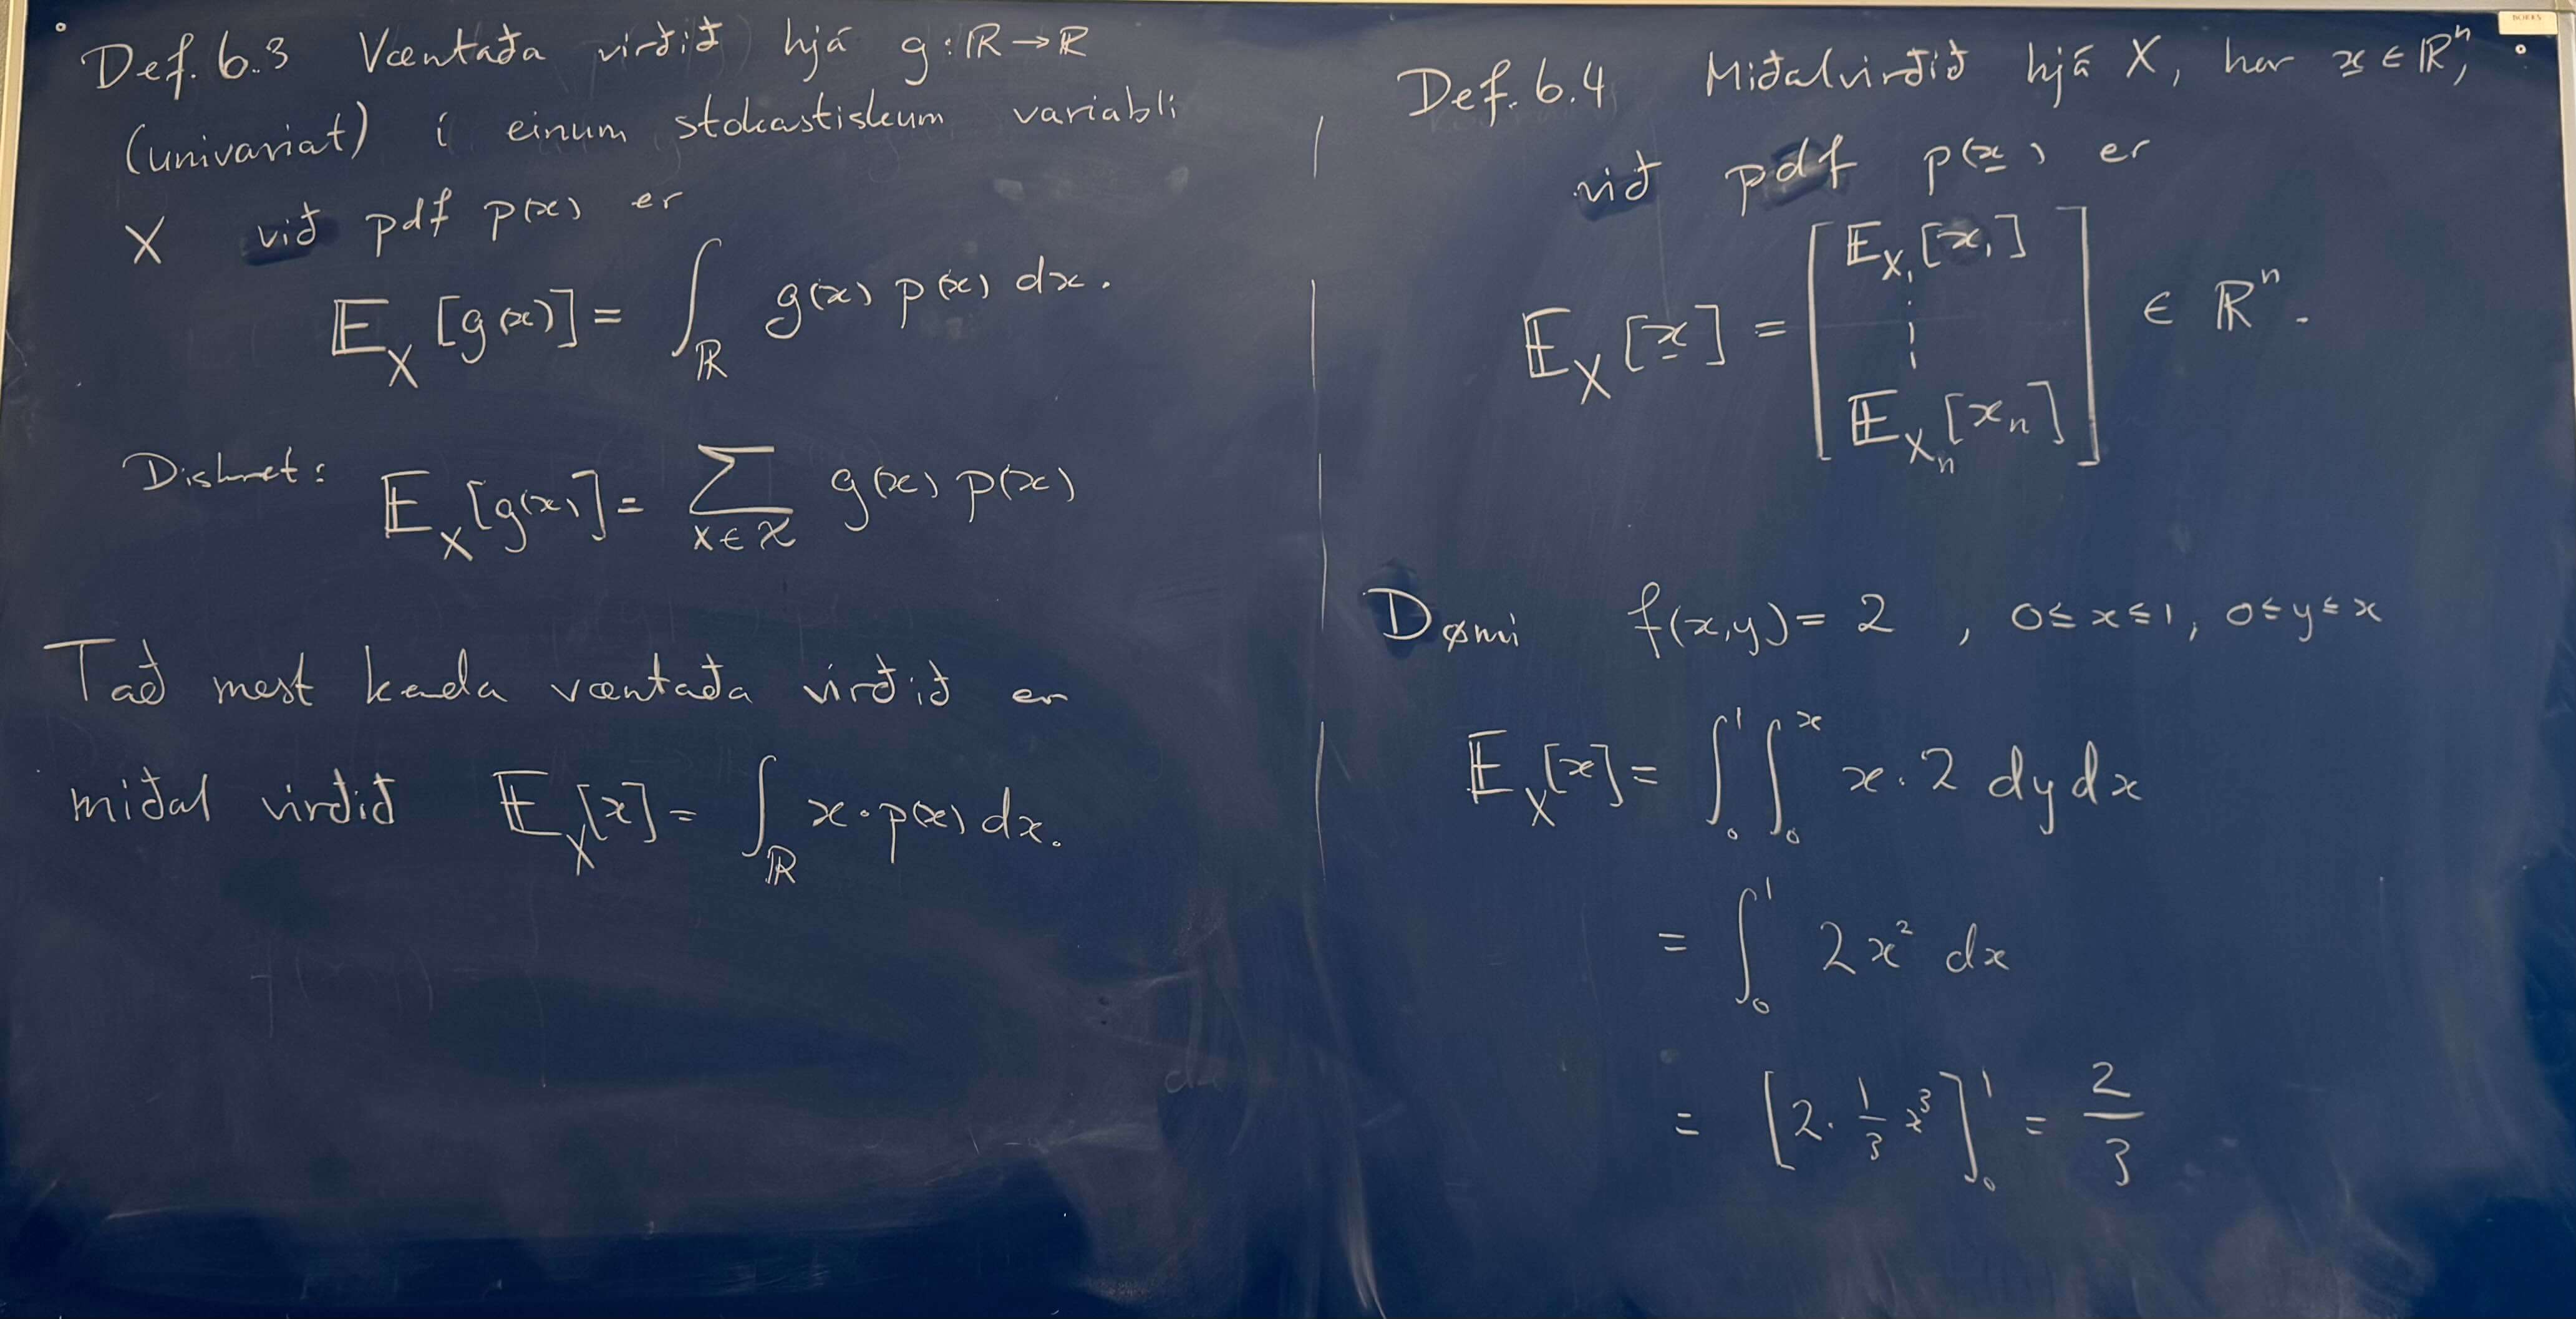 Def. 6.3 Væntaða virðið hjá g: ℝ → ℝ
(univariat) í einum stokastiskum variabli
X við pdf p(x) er
𝔼_X [g(x)] = ∫_ℝ g(x) p(x) dx.
Diskret: 𝔼_X [g(x)] = ∑_{x∈𝒳} g(x) p(x)
Tað mest kenda væntaða virðið er
miðal virðið 𝔼_X[x] = ∫_ℝ x · p(x) dx.
Def. 6.4 Miðalvirðið hjá X, har x̲ ∈ ℝⁿ,
við pdf p(x̲) er
𝔼_X [x̲] = [ 𝔼_{X₁}[x₁] ⋮ 𝔼_{Xₙ}[xₙ] ] ∈ ℝⁿ.
Dømi f(x,y) = 2 , 0 ≤ x ≤ 1, 0 ≤ y ≤ x
𝔼_X[x] = ∫₀¹ ∫₀ˣ x · 2 dy dx
= ∫₀¹ 2x² dx
= [2 · 1/3 x³]₀¹ = 2/3